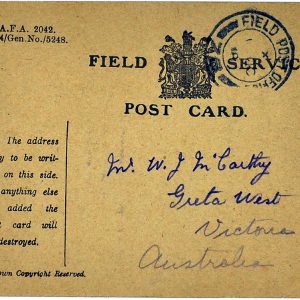 A.F.A. 2042.
/Gen.No./5248.
FIELD SERVIC
FIELD POST OFFICE
POST CARD.
The address
y to be writ-
on this side.
anything else
added the
card will
destroyed.
Mr. W. J McCarthy
Greta West
Victoria
Australia
own Copyright Reserved.